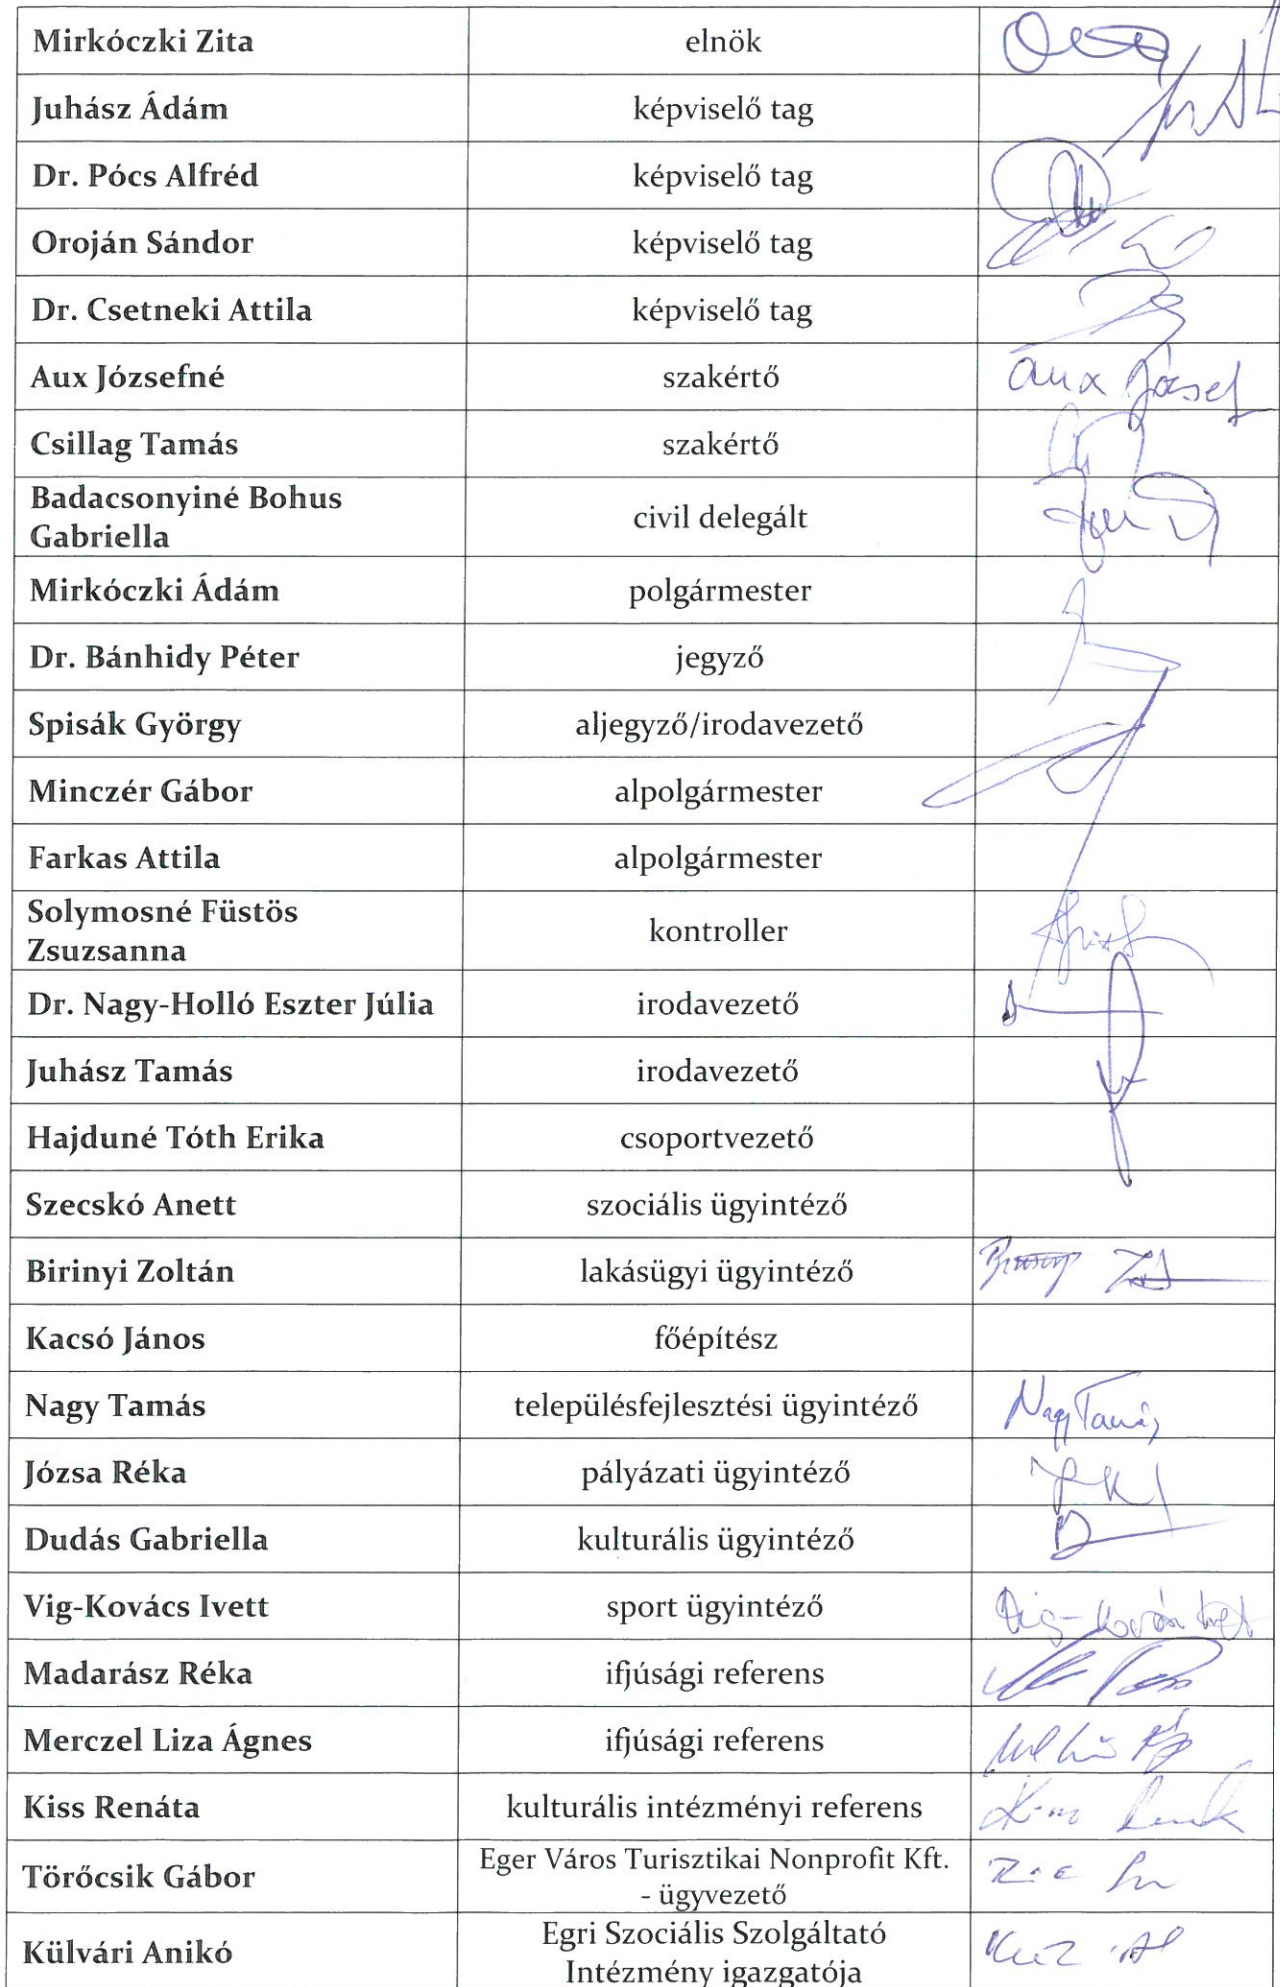 Mirkóczki Zita elnök
Juhász Ádám képviselő tag
Dr. Pócs Alfréd képviselő tag
Oroján Sándor képviselő tag
Dr. Csetneki Attila képviselő tag
Aux Józsefné szakértő Aux József
Csillag Tamás szakértő
Badacsonyiné Bohus
Gabriella
civil delegált
Mirkóczki Ádám polgármester
Dr. Bánhidy Péter jegyző
Spisák György aljegyző/irodavezető
Minczér Gábor alpolgármester
Farkas Attila alpolgármester
Solymosné Füstös
Zsuzsanna
kontroller
Dr. Nagy-Holló Eszter Júlia irodavezető
Juhász Tamás irodavezető
Hajduné Tóth Erika csoportvezető
Szecskó Anett szociális ügyintéző
Birinyi Zoltán lakásügyi ügyintéző
Kacsó János főépítész
Nagy Tamás településfejlesztési ügyintéző Nagy Tamás
Józsa Réka pályázati ügyintéző
Dudás Gabriella kulturális ügyintéző
Vig-Kovács Ivett sport ügyintéző Vig-Kovács Ivett
Madarász Réka ifjúsági referens
Merczel Liza Ágnes ifjúsági referens
Kiss Renáta kulturális intézményi referens
Törőcsik Gábor
Eger Város Turisztikai Nonprofit Kft.
- ügyvezető
Külvári Anikó
Egri Szociális Szolgáltató
Intézmény igazgatója